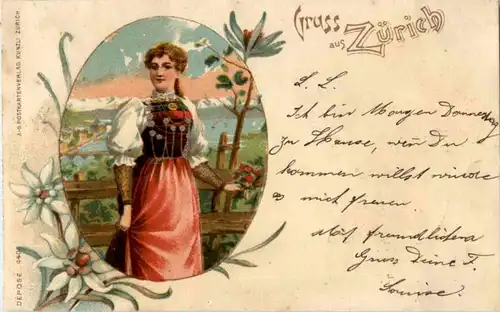 Gruss
aus
Zürich
L. L.
Ich bin Morgen Donnerstag
zu Hause, wen Du
kommen willst würde
es mich freuen.
Mit freundlichem
Gruss Deine F.
Louise.
A.-G. POSTKARTENVERLAG KÜNZLI ZÜRICH.
DÉPOSÉ